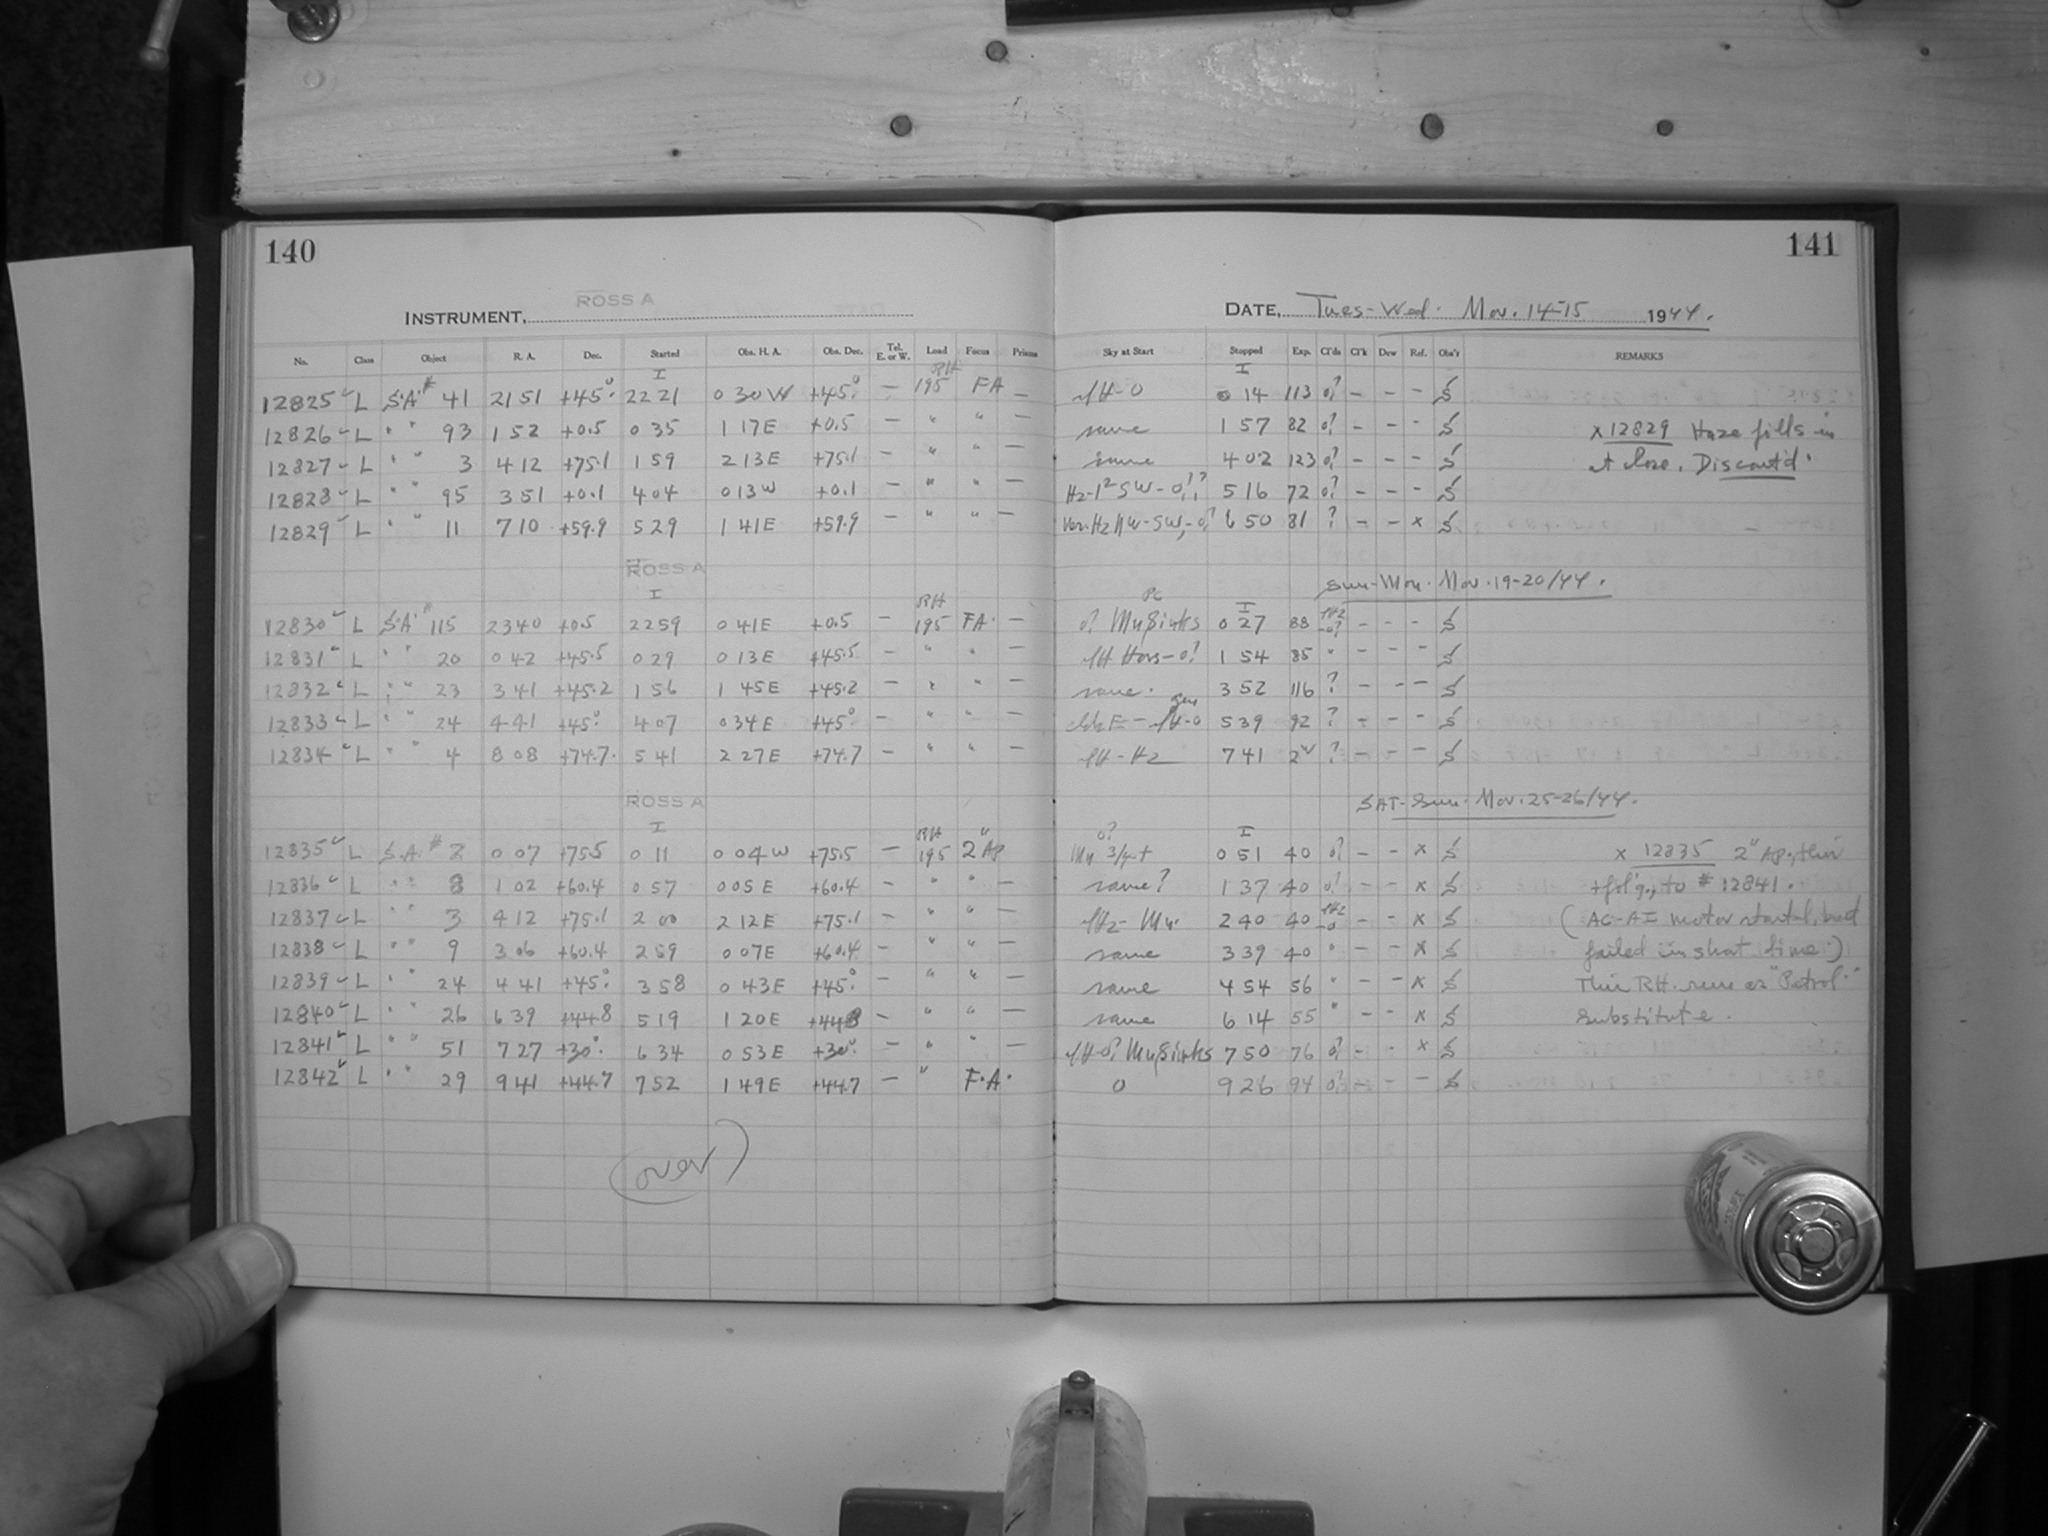 140
141
ROSS A
INSTRUMENT,
DATE, Tues-Wed. Nov. 14-15 1944.
No. Class Object R. A. Dec. Started Obs. H. A. Obs. Dec. Tel. E. or W. Load Focus Prisms Sky at Start Stopped Exp. Cl'ds Cl'k Dew Ref. Obs'r REMARKS
I RH I
12825 L S.A. # 41 21 51 +45° 22 21 0 30 W +45° — 195 FA — 0 14 113 o? — — —
12826 L " " 93 1 52 +0.5 0 35 1 17 E +0.5 — " " — same 1 57 82 o? — — — x 12829 Haze fills in
12827 L " " 3 4 12 +75.1 1 59 2 13 E +75.1 — " " — same 4 02 123 o? — — — at close. Discont'd.
12828 L " " 95 3 51 +0.1 4 04 0 13 W +0.1 — " " — 5 16 72 o? — — —
12829 L " " 11 7 10 +59.9 5 29 1 41 E +59.9 — " " — 6 50 81 ? — — x
ROSS A Sun-Mon. Nov. 19-20/44.
I RH I
12830 L S.A. # 115 23 40 +0.5 22 59 0 41 E +0.5 — 195 FA. — 0 27 88 — — —
12831 L " " 20 0 42 +45.5 0 29 0 13 E +45.5 — " " — 1 54 85 " — — —
12832 L " " 23 3 41 +45.2 1 56 1 45 E +45.2 — " " — same. 3 52 116 ? — — —
12833 L " " 24 4 41 +45° 4 07 0 34 E +45° — " " — 5 39 92 ? — — —
12834 L " " 4 8 08 +74.7 5 41 2 27 E +74.7 — " " — 7 41 ? — — —
ROSS A SAT-Sun. Nov. 25-26/44.
I RH I
12835 L S.A. # 2 0 07 +75.5 0 11 0 04 W +75.5 — 195 2" Ap 0 51 40 o? — — x x 12835 2" Ap., this
12836 L " " 8 1 02 +60.4 0 57 0 05 E +60.4 — " " — same? 1 37 40 o? — — x + fol'g., to # 12841.
12837 L " " 3 4 12 +75.1 2 00 2 12 E +75.1 — " " — 2 40 40 — — x (AC-AI motor started, but
12838 L " " 9 3 06 +60.4 2 59 0 07 E +60.4 — " " — same 3 39 40 " — — x failed in short time.)
12839 L " " 24 4 41 +45° 3 58 0 43 E +45° — " " — same 4 54 56 " — — x This RH. run as "Patrol"
12840 L " " 26 6 39 +44.8 5 19 1 20 E +44.8 — " " — same 6 14 55 " — — x substitute.
12841 L " " 51 7 27 +30° 6 34 0 53 E +30° — " " — 7 50 76 o? — — x
12842 L " " 29 9 41 +44.7 7 52 1 49 E +44.7 — " F.A. 0 9 26 94 o? — — —
(over)